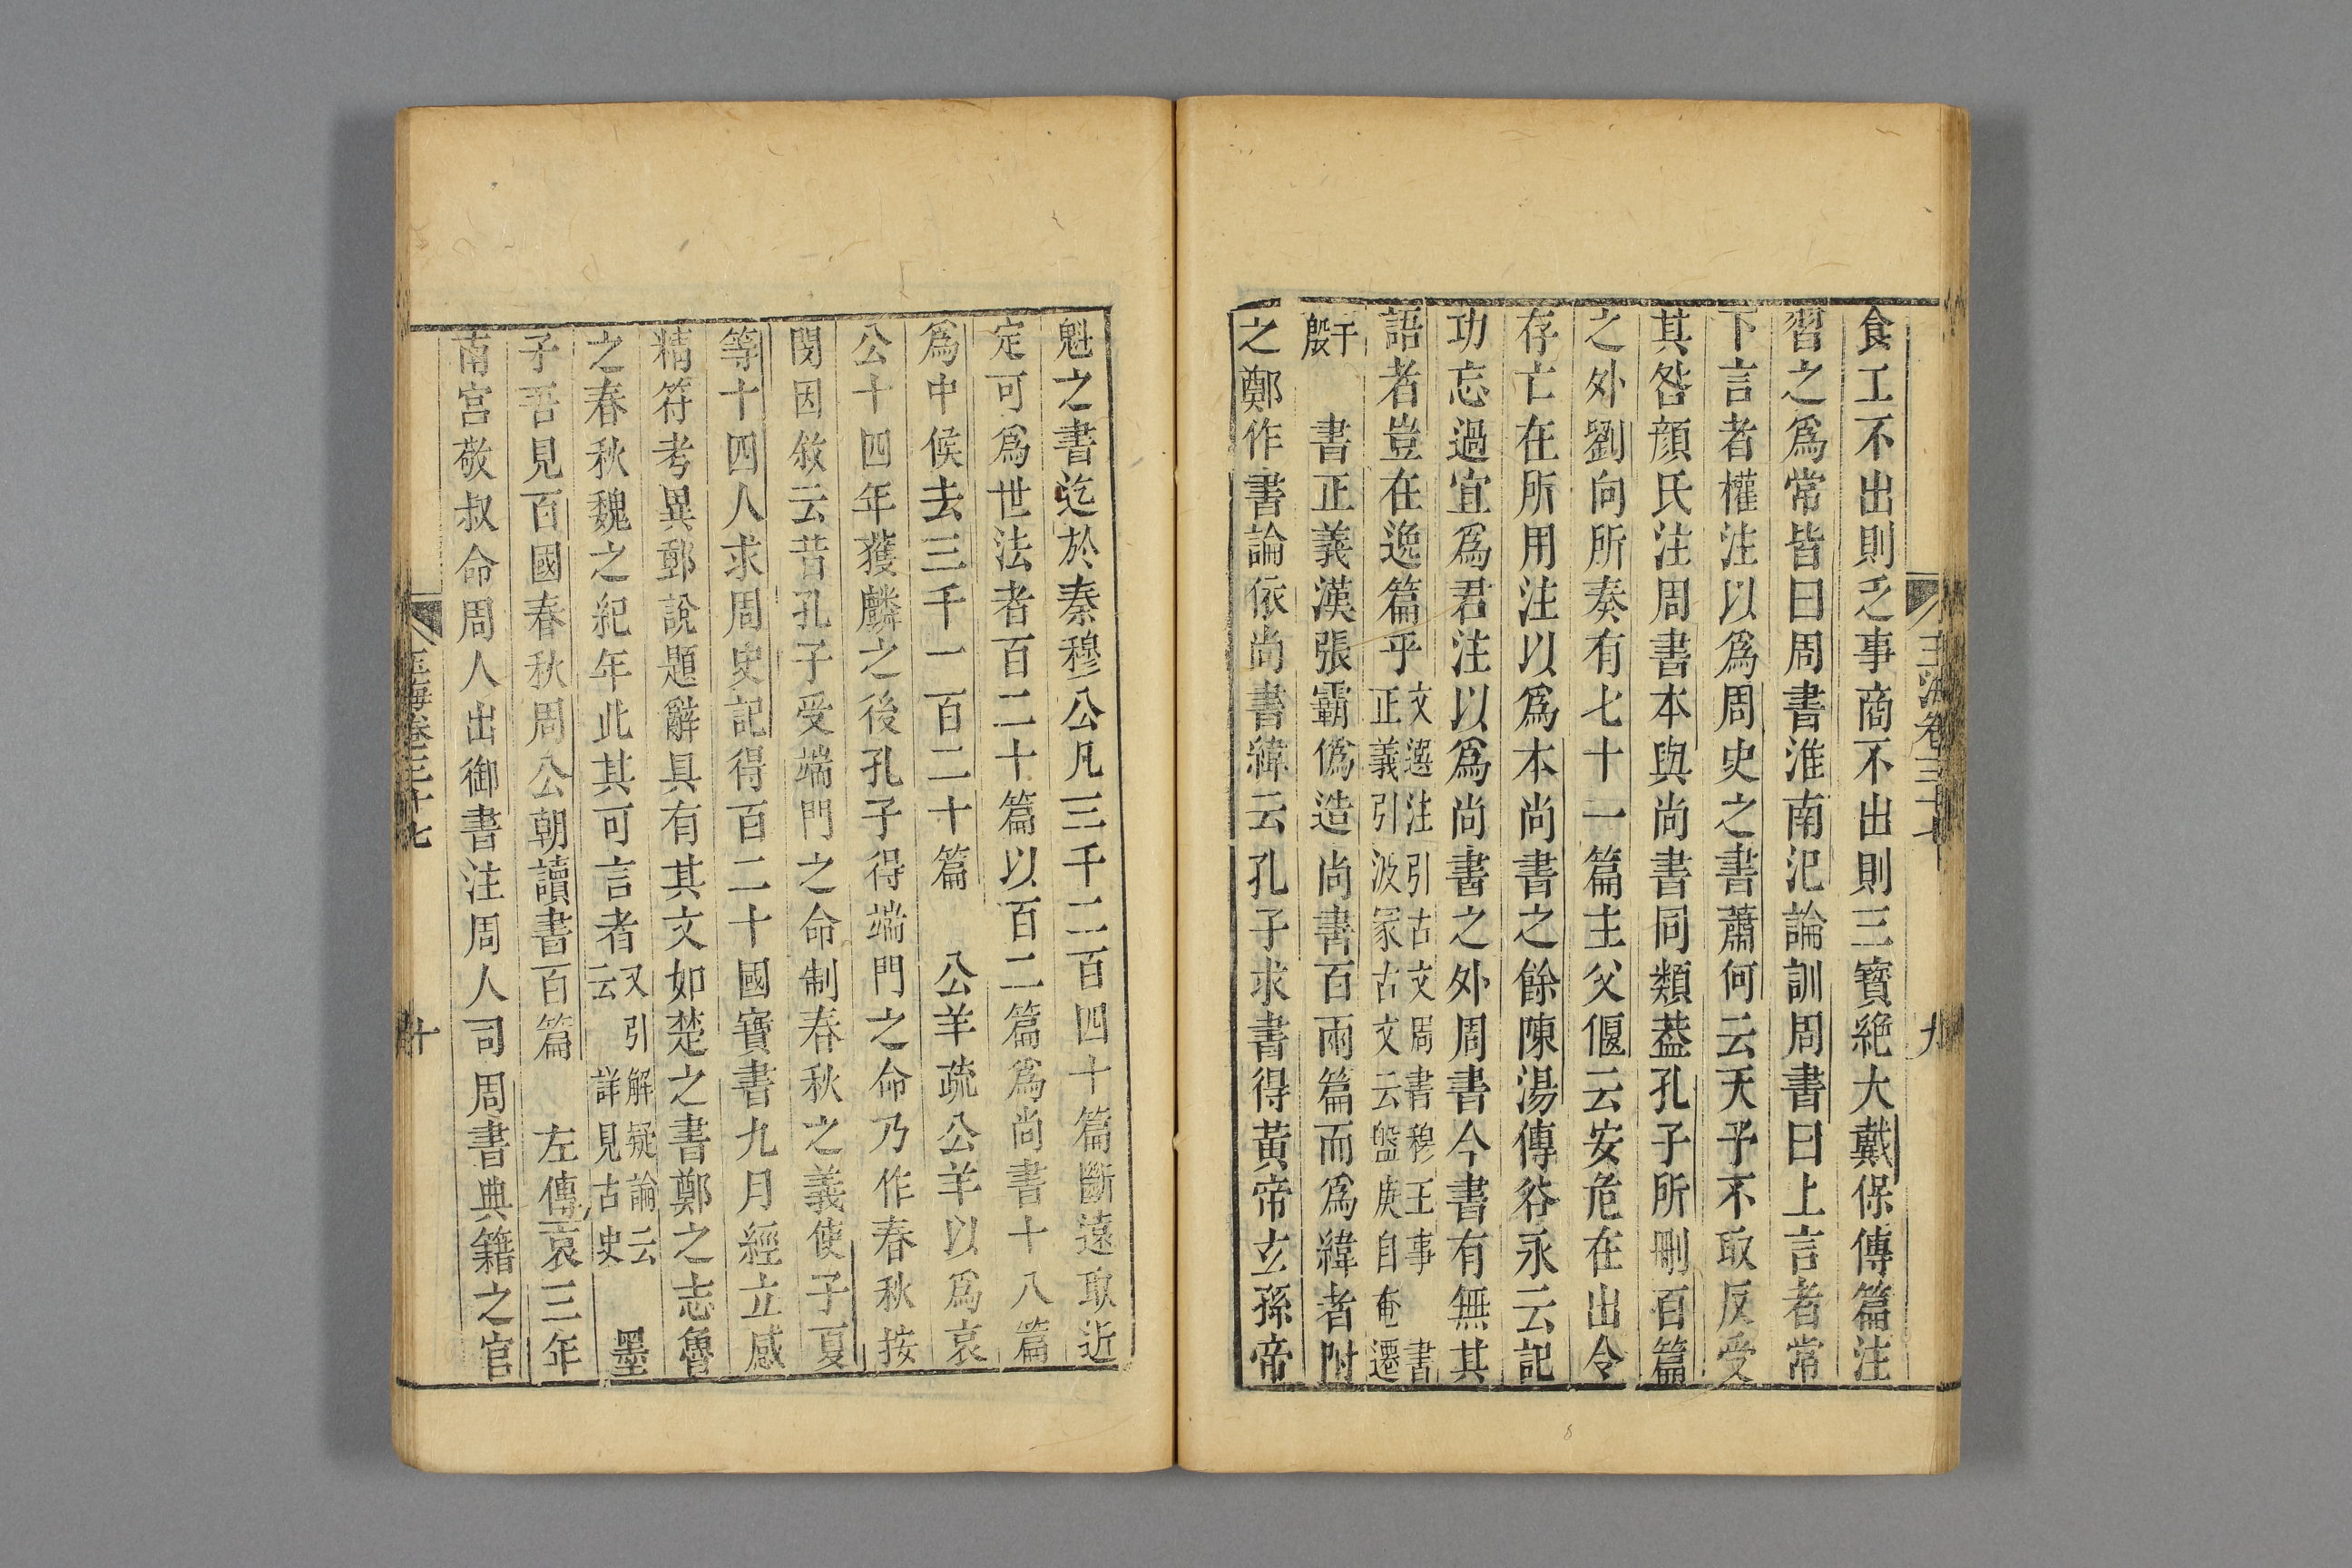 食工不出則乏事商不出則三寳絶大戴保傅篇注
習之爲常皆曰周書淮南氾論訓周書曰上言者常
下言者權注以爲周史之書蕭何云天予不取反受
其咎顔氏注周書本與尚書同類葢孔子所刪百篇
之外劉向所奏有七十一篇主父偃云安危在出令
存亡在所用注以爲本尚書之餘陳湯傳谷永云記
功忘過宜爲君注以爲尚書之外周書今書有無其
語者豈在逸篇乎文選注引古文周書穆王事 書
正義引汲冢古文云盤庚自奄遷
于
殷 書正義漢張霸僞造尚書百兩篇而爲緯者附
之鄭作書論依尚書緯云孔子求書得黄帝玄孫帝
玉海卷三十七 九
魁之書迄於秦穆公凡三千二百四十篇斷遠取近
定可爲世法者百二十篇以百二篇爲尚書十八篇
爲中候去三千一百二十篇 公羊疏公羊以爲哀
公十四年獲麟之後孔子得端門之命乃作春秋按
閔因敘云昔孔子受端門之命制春秋之義使子夏
等十四人求周史記得百二十國寶書九月經立感
精符考異郵說題辭具有其文如楚之書鄭之志魯
之春秋魏之紀年此其可言者又引解疑論云
云 詳見古史 墨
子吾見百國春秋周公朝讀書百篇 左傳哀三年
南宮敬叔命周人出御書注周人司周書典籍之官
玉海卷三十七 十